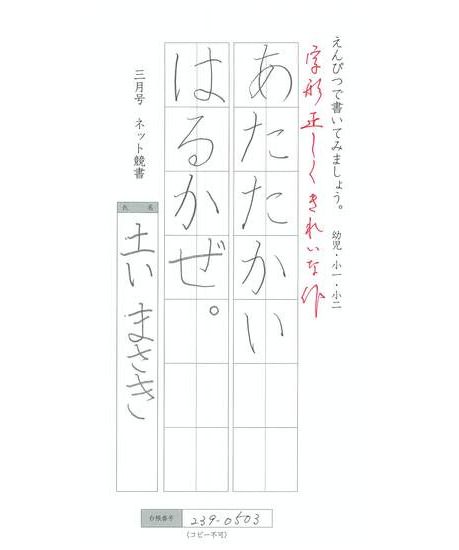 えんぴつで書いてみましょう。
幼児・小一・小二
字形正しくきれいな作
あたたかい
はるかぜ。
三月号 ネット競書
氏名
土い まさき
台帳番号 239-0503
(コピー不可)